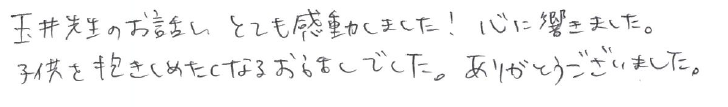 玉井先生のお話し とても感動しました! 心に響きました。
子供を抱きしめたくなるおはなしでした。ありがとうございました。